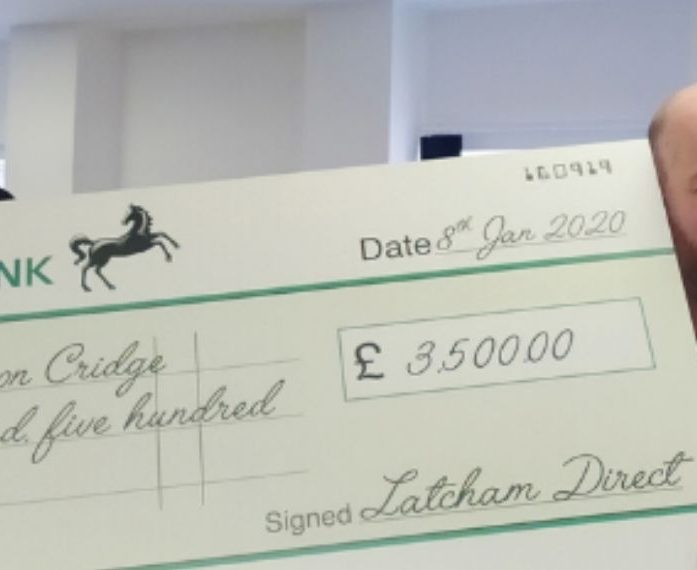 160919
NK
Date 8th Jan 2020
on Cridge
£ 3,500.00
d five hundred
Signed Latcham Direct